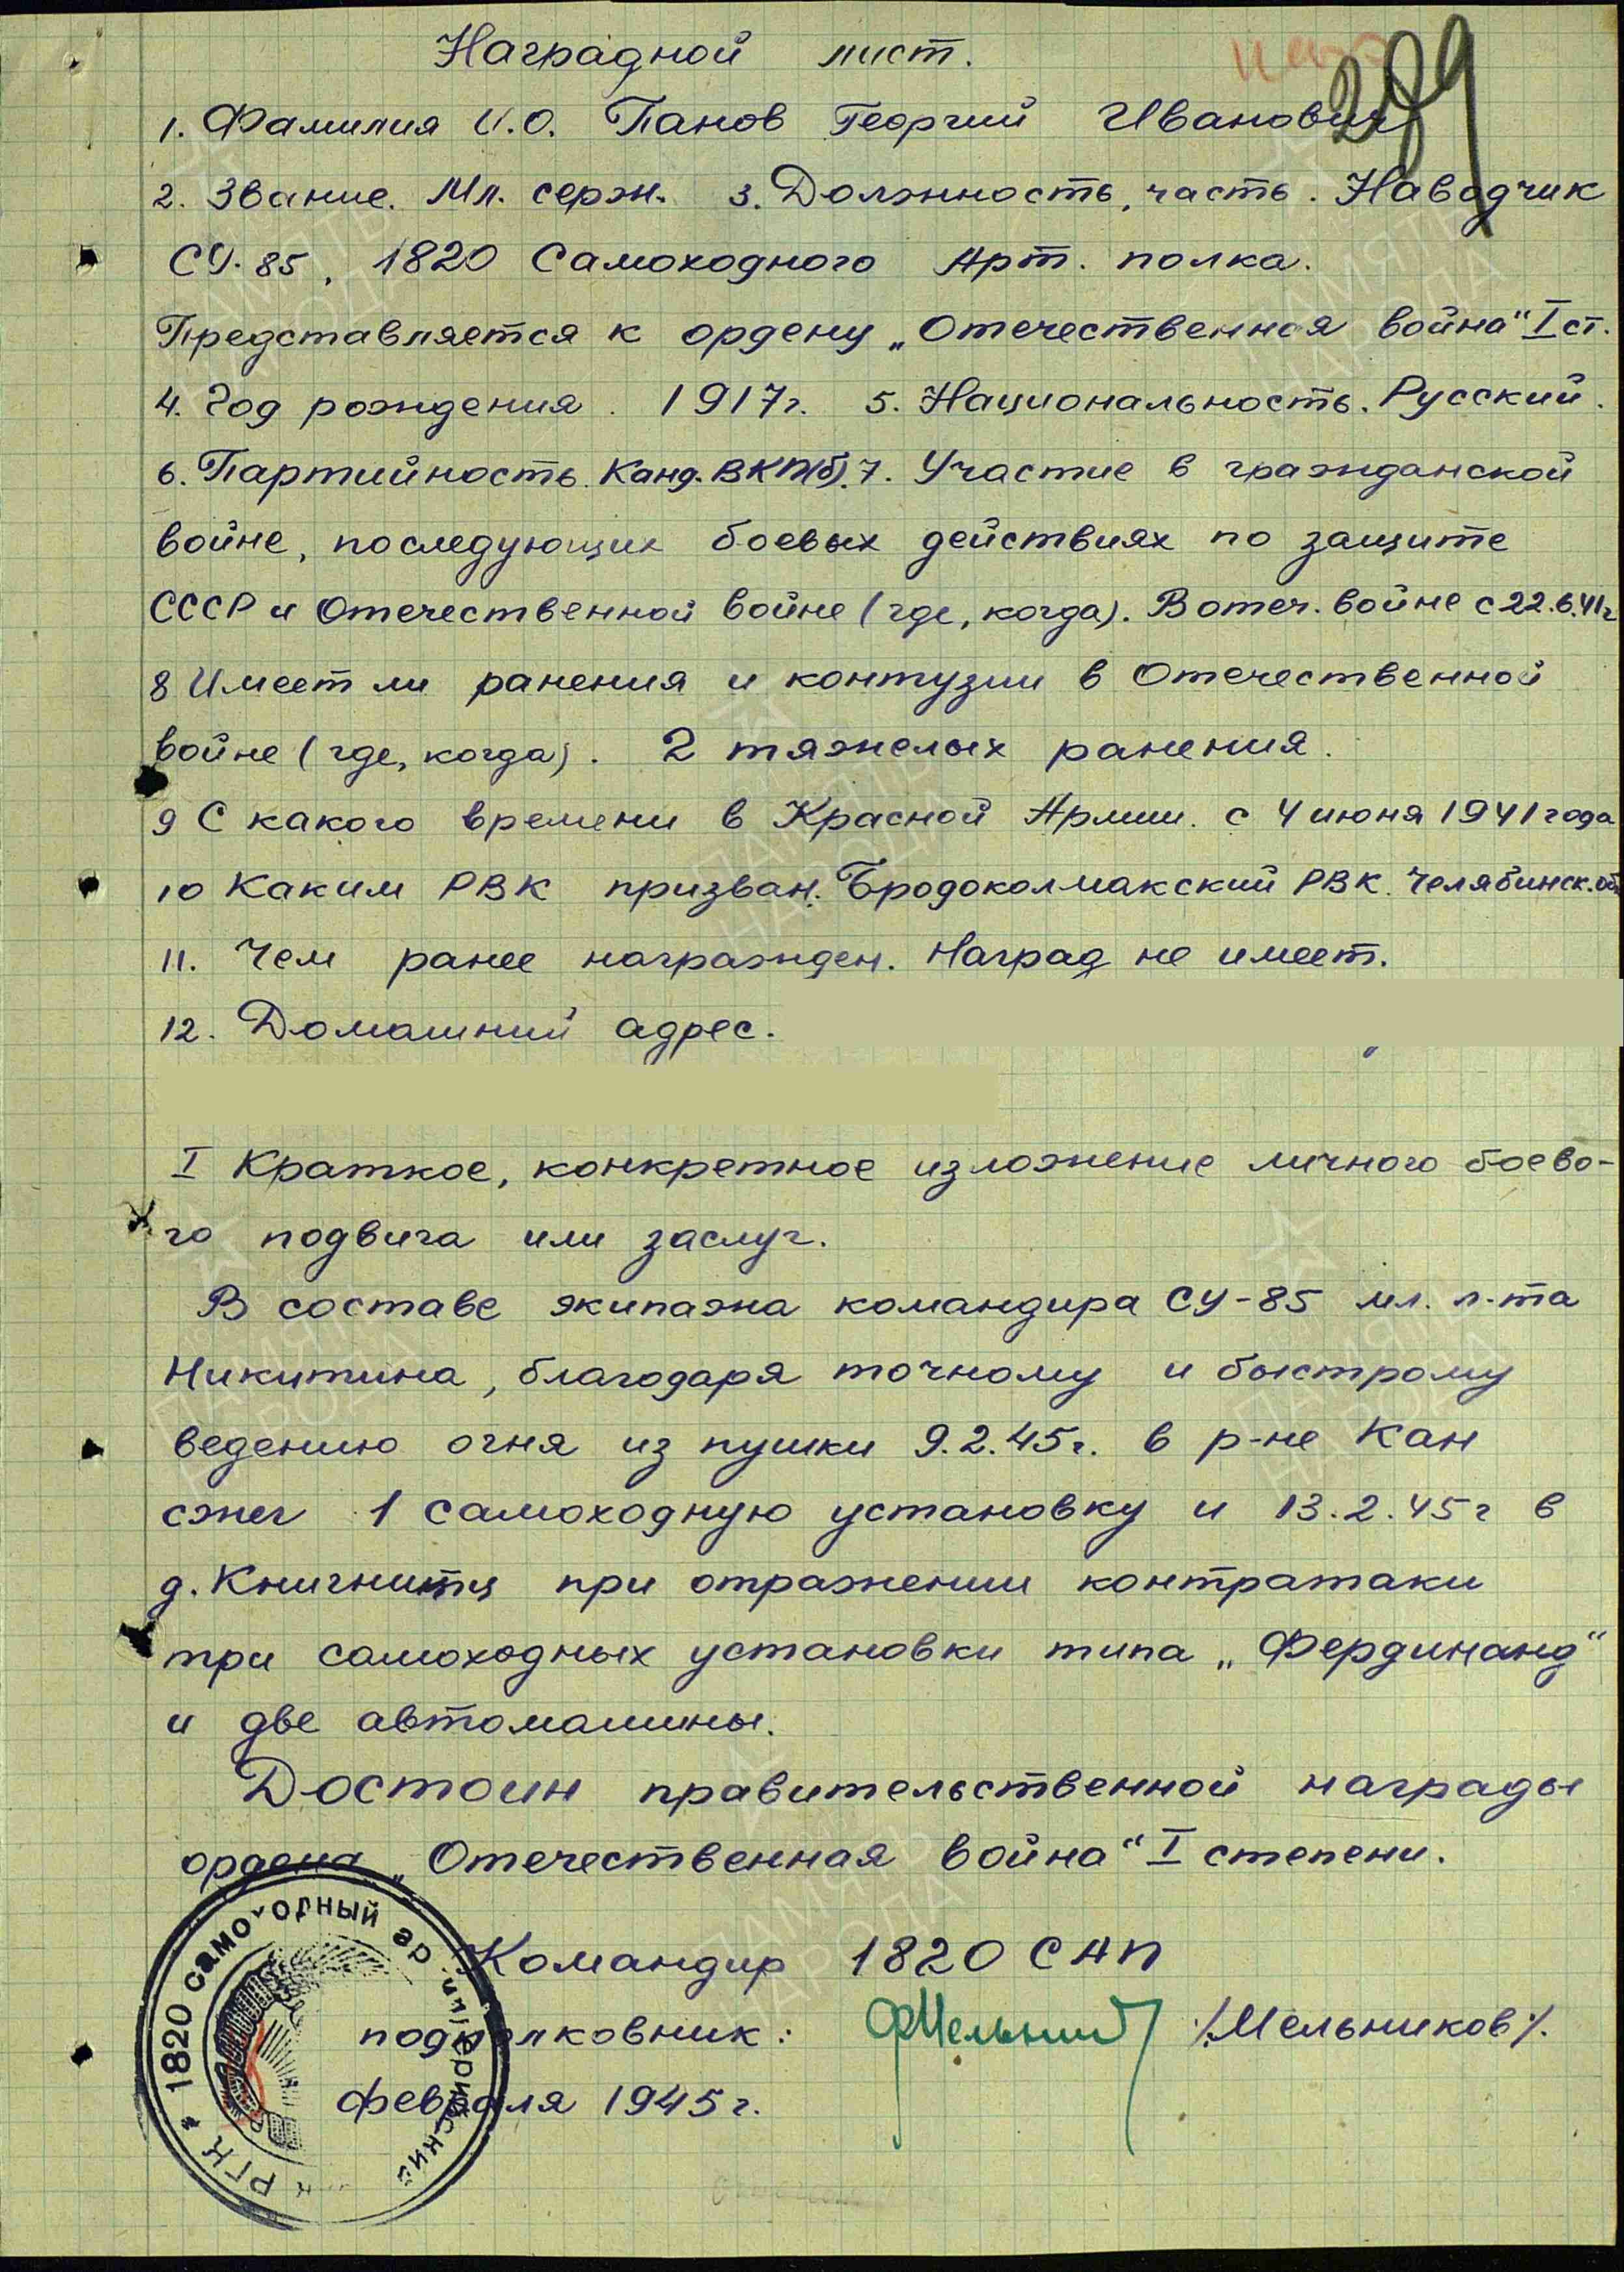 289
Наградной лист.
1. Фамилия И.О. Панов Георгий Иванович
2. Звание. Мл. серж. 3. Должность, часть. Наводчик
СУ-85, 1820 Самоходного Арт. полка.
Представляется к ордену „Отечественная война“ I ст.
4. Год рождения. 1917г. 5. Национальность. Русский.
6. Партийность. Канд. ВКП(б). 7. Участие в гражданской
войне, последующих боевых действиях по защите
СССР и Отечественной войне (где, когда). В отеч. войне с 22.6.41г
8 Имеет ли ранения и контузии в Отечественной
войне (где, когда). 2 тяжелых ранения.
9 С какого времени в Красной Армии. с 4 июня 1941 года
10 Каким РВК призван. Бродоколмакский РВК Челябинск. об
11. Чем ранее награжден. Наград не имеет.
12. Домашний адрес.
I Краткое, конкретное изложение личного боево-
го подвига или заслуг.
В составе экипажа командира СУ-85 мл. л-та
Никитина, благодаря точному и быстрому
ведению огня из пушки 9.2.45г. в р-не Кан
сжег 1 самоходную установку и 13.2.45г в
д. при отражении контратаки
три самоходных установки типа „Фердинанд“
и две автомашины.
Достоин правительственной награды
ордена „Отечественная война“ I степени.
Командир 1820 САП
подполковник: /Мельников/.
февраля 1945г.
1820 самоходный артиллерийский РГК
ПАМЯТЬ НАРОДА